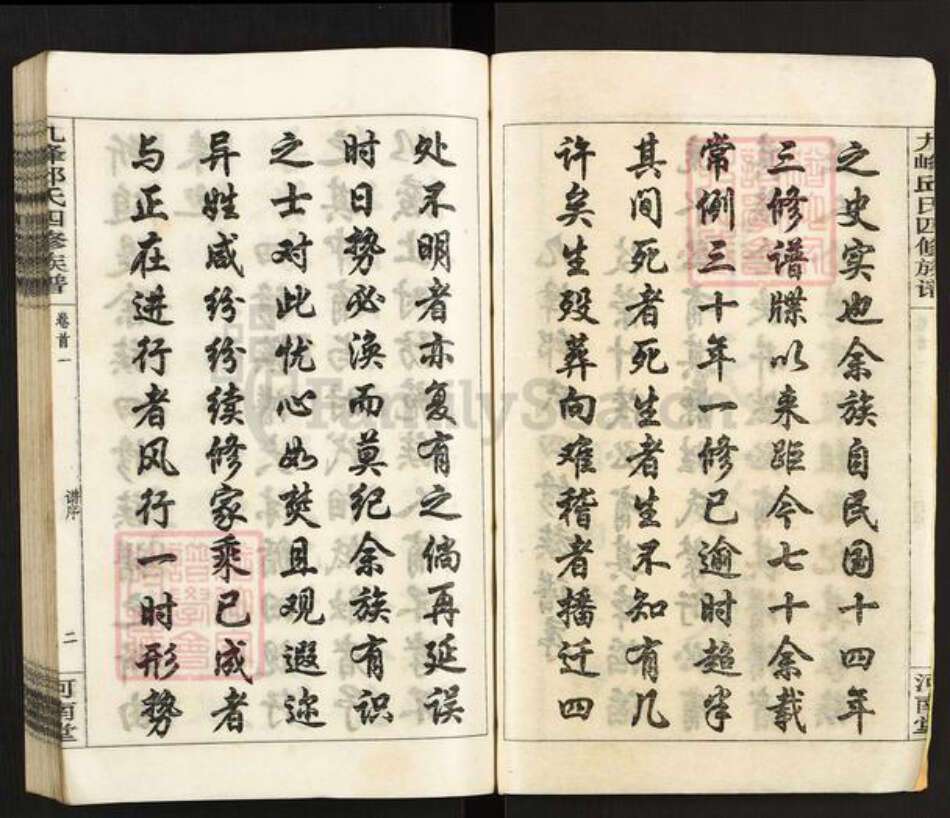 九峰邱氏四修族谱
河南堂
之史实也余族自民国十四年
三修谱牒以来距今七十余载
常例三十年一修已逾时超半
其间死者死生者生不知有几
许矣生殁葬向难稽者播迁四
处不明者亦复有之倘再延误
时日势必涣而莫纪余族有识
之士对此忧心如焚且观遐迩
异姓咸纷纷续修家乘已成者
与正在进行者风行一时形势
九峰邱氏四修族谱
卷首一
谱序
二
河南堂
FamilySearch